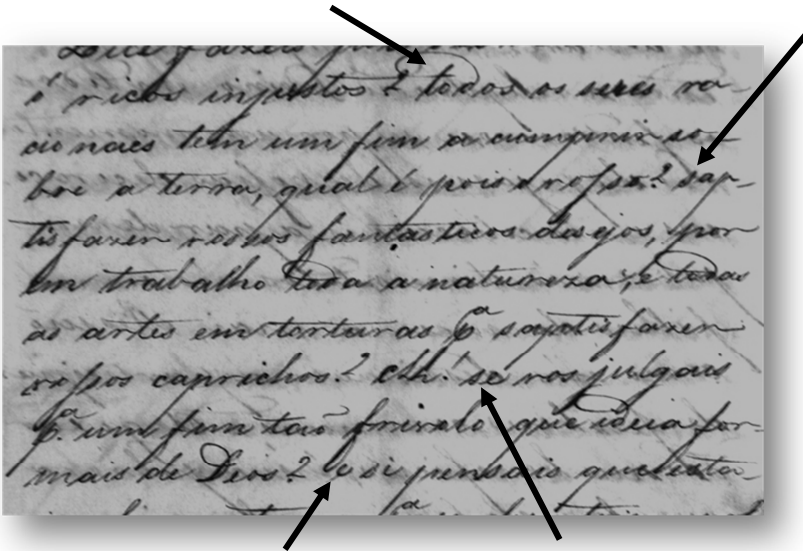 ó ricos injustos? todos os seres ra-
cionaes tem um fim a cumprir so-
bre a terra, qual é pois o vosso? sap-
tisfazer vossos fantasticos desejos, por
em trabalho toda a natureza, e todas
as artes em torturas pª saptisfazer
vossos caprichos? Ah! se vos julgais
pª um fim taõ frivolo que ideia for-
mais de Deos? e si pensais que esta-